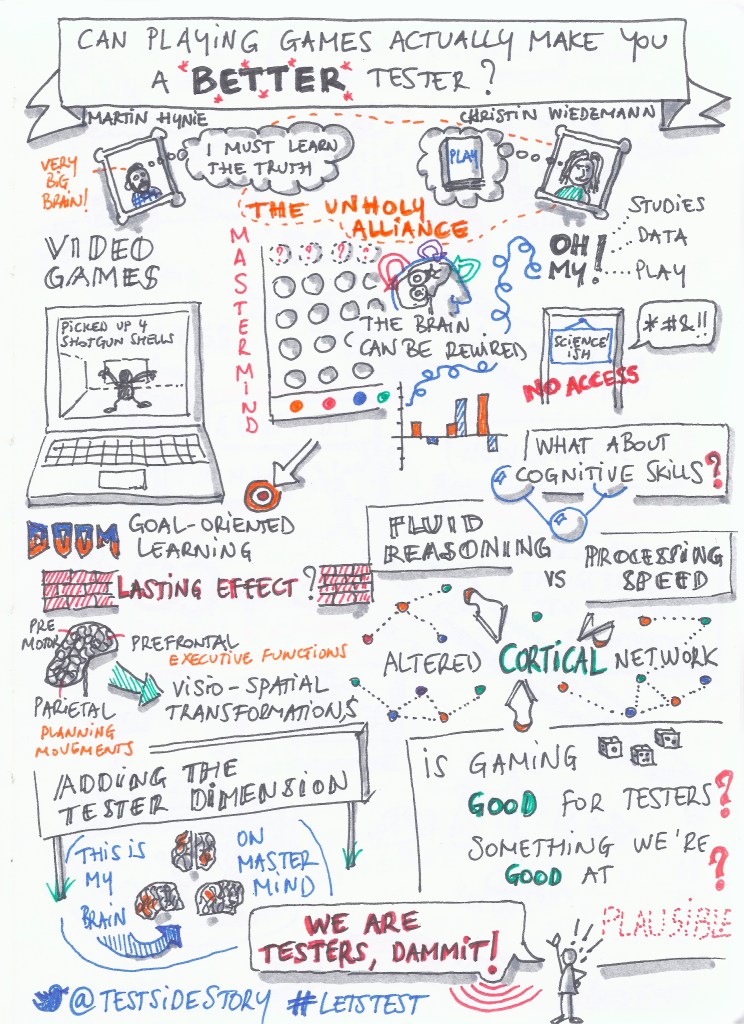 CAN PLAYING GAMES ACTUALLY MAKE YOU
A *BETTER* TESTER?
MARTIN HYNIE
CHRISTIN WIEDEMANN
VERY
BIG
BRAIN!
I MUST LEARN
THE TRUTH
PLAY
THE UNHOLY
ALLIANCE
STUDIES
OH
MY!
DATA
PLAY
VIDEO
GAMES
MASTERMIND
? ? ? ?
PICKED UP 4
SHOTGUN SHELLS
THE BRAIN
CAN BE REWIRED
SCIENCE'
ISH
*#&!!
NO ACCESS
WHAT ABOUT
COGNITIVE SKILLS?
DOOM
GOAL-ORIENTED
LEARNING
FLUID
REASONING
VS
PROCESSING
SPEED
LASTING EFFECT?
PRE
MOTOR
PREFRONTAL
EXECUTIVE FUNCTIONS
VISIO-SPATIAL
TRANSFORMATIONS
PARIETAL
PLANNING
MOVEMENTS
ALTERED CORTICAL NETWORK
ADDING THE
TESTER DIMENSION
IS GAMING
GOOD FOR TESTERS?
SOMETHING WE'RE
GOOD AT ?
THIS IS
MY
BRAIN
ON
MASTER
MIND
WE ARE
TESTERS, DAMMIT!
PLAUSIBLE
@TESTSIDESTORY #LETSTEST